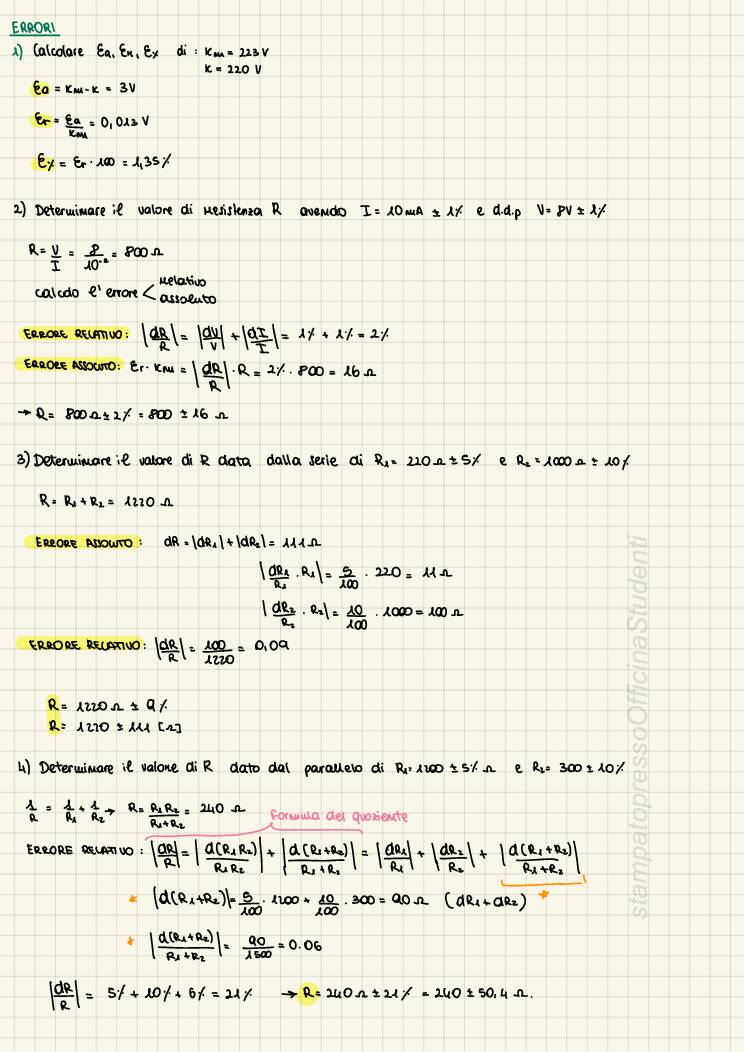 ERRORI
1) Calcolare Ea, Er, E% di : KM = 223 V
K = 220 V
Ea = KM - K = 3V
Er = Ea/KM = 0,013 V
E% = Er · 100 = 1,35%
2) Determinare il valore di resistenza R avendo I = 10 mA ± 1% e d.d.p V = 8V ± 1%
R = V/I = 8/10⁻² = 800 Ω
calcolo l'errore < relativo
assoluto
ERRORE RELATIVO: |dR/R| = |dV/V| + |dI/I| = 1% + 1% = 2%
ERRORE ASSOLUTO: Er · KM = |dR/R| · R = 2% · 800 = 16 Ω
→ R = 800 Ω ± 2% = 800 ± 16 Ω
3) Determinare il valore di R data dalla serie di R₁ = 220 Ω ± 5% e R₂ = 1000 Ω ± 10%
R = R₁ + R₂ = 1220 Ω
ERRORE ASSOLUTO: dR = |dR₁| + |dR₂| = 111 Ω
|dR₁/R₁ · R₁| = 5/100 · 220 = 11 Ω
|dR₂/R₂ · R₂| = 10/100 · 1000 = 100 Ω
ERRORE RELATIVO: |dR/R| = 100/1220 = 0,09
R = 1220 Ω ± 9%
R = 1220 ± 111 [Ω]
4) Determinare il valore di R dato dal parallelo di R₁ = 1200 ± 5% Ω e R₂ = 300 ± 10%
1/R = 1/R₁ + 1/R₂ → R = R₁R₂/R₁+R₂ = 240 Ω
formula del quoziente
ERRORE RELATIVO: |dR/R| = |d(R₁R₂)/R₁R₂| + |d(R₁+R₂)/R₁+R₂| = |dR₁/R₁| + |dR₂/R₂| + |d(R₁+R₂)/R₁+R₂|
* |d(R₁+R₂)| = 5/100 · 1200 + 10/100 · 300 = 90 Ω (dR₁ + dR₂) *
* |d(R₁+R₂)/R₁+R₂| = 90/1500 = 0.06
|dR/R| = 5% + 10% + 6% = 21% → R = 240 Ω ± 21% = 240 ± 50,4 Ω.
stampatopressoOfficinaStudenti